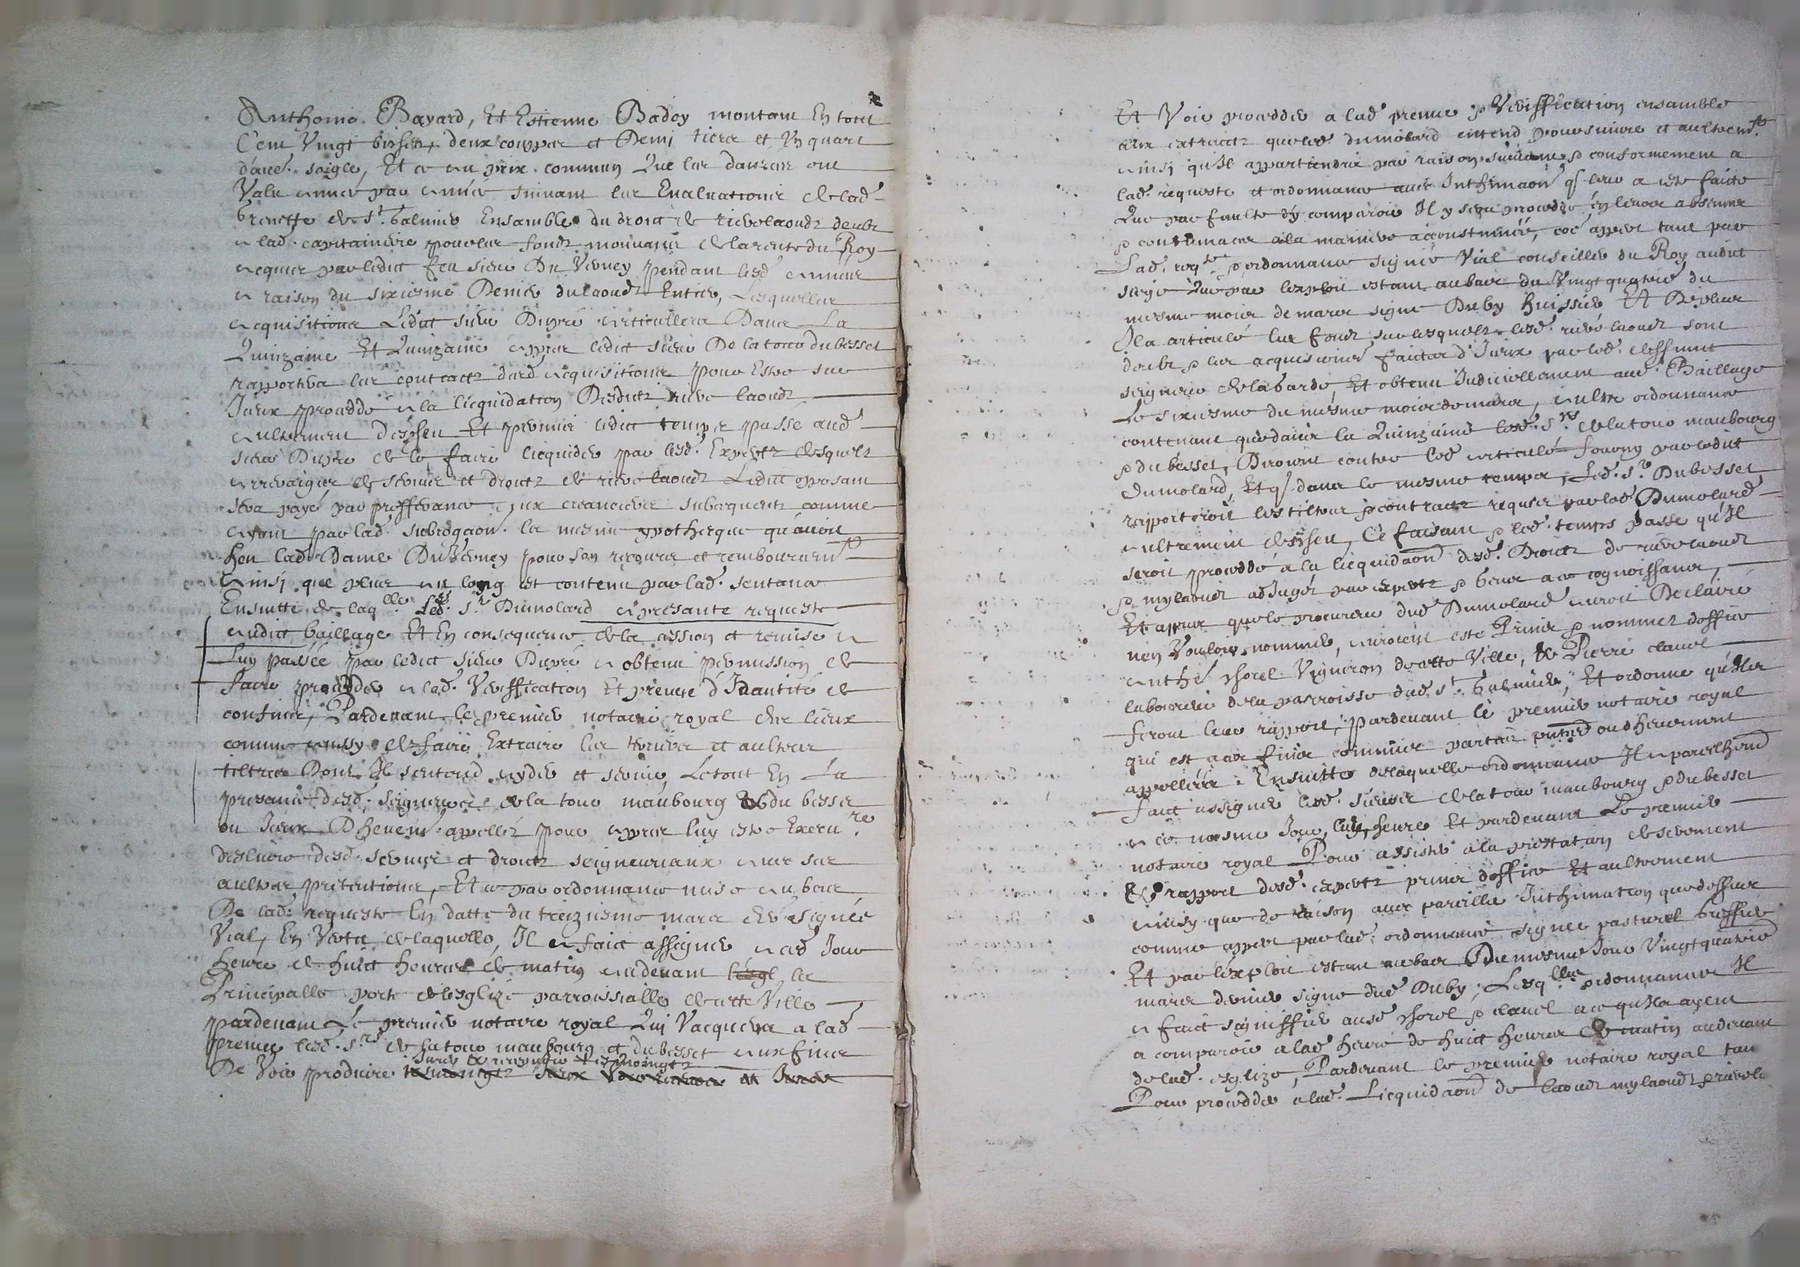 Anthoine Bayard, Et Estienne Badoy montant En tout
Cent Vingt bichetz, deux couppes et Demi tiers et Un quart
d'avec soigle, Et ce au prix commun Que les danrees ont
Valu annee par annee suivant les Evaluationes de lad.
Grenette de St. Galmier Ensemble du droit de rierelaoudz deubz
a lad. capitainerie pour les fondz mouvantz de la rente du Roy
acquis par ledict feu sieur Du Verney pendant lesd. annees
a raison du sixiesme Denier du laoudz Entier, Lesquelles
acquisitions Ledict sieur Dupré articullera Dans La
Quinzaine Et Quinzaine appres ledict sieur De la tour du besset
rapportera les contractz desd. acquisitions pour Estre sur
Iceux proceddé a la licquidation Desdictz riere laoudz
aultrement Desheu Et permis ledict temps passé aud.
sieur Dupré de le faire licquider par lesd. Expertz desquelz
arreraiges de servis et droictz de riere laoudz Ledict opposant
sera payé par prefferance aux creanciers subsequents comme
ayant par lad. subrogaon. la mesme ypotheque qu'avoit
heu lad. Dame Du Verney pour son recours et remboursemt.
Ainsi que plus au long est contenu par lad. sentance
Ensuitte de laqlle. Led. Sr. Dumolard a presanté requeste
audict bailliage Et En consequence de la cession et remise a
Luy passée par ledict sieur Dupré a obtenu permission de
faire procedder a lad. Veriffication Et preuve d'Identité de
confins, Pardevant le premier notaire royal des lieux
comme aussy de faire Extraire les terriers et aultres
tiltres Dont Il s'entend ayder et servir, Le tout En La
presance desd. seigneurs de la tour maubourg & du besset
ou Iceux Dhement appellez pour appres luy estre Execu.re
desliuré desd. servis et droictz seigneuriaux avec ses
aultres pretentions, Et ce par ordonnance mise au bas
De lad. requeste En datte du treiziesme mars dernier signée
Vial, En Vertu de laquelle, Il a faict assigner a ced. Jour
heure de huict heures de matin audevant la
Principalle porte de lesglize parroissialle de cette Ville
pardevant Le premier notaire royal Qui Vacquera a lad.
preuve lesd. Srs. de la tour maubourg et du besset aux fins
De Voir produire
Et Voir procedder a lad. preuve & Veriffication ensamble
aux extraictz que led. dumolard entend poursuivre et aultremt.
ainsi qu'Il appartiendra par raison suivant & conformement a
lad. requeste et ordonnance avec Inthimaon. q. leur a esté faicte
Que par faulte dy comparoir Il y sera proceddé en leurs absence
& contumace a la maniere accoustumée, coe. appert tant par
Lad. reqte. & ordonnance signée Vial conseiller du Roy audict
siege Que par lexploit estant au bas du Vingt quatrie. du
mesme mois de mars signé Duby huissier Et Depuis
Il a articulé les fondz sur lesquelz lesd. riere laoudz sont
deubz & les acquisitions faictes d'Iceux par led. deffunct
seigneur de labarde Et obtenu Judiciellement aud. Bailliage
Le sixiesme du mesme mois de mars, aultre ordonnance
contenant que dans la Quinzaine lesd. Srs. de la tour maubourg
& du besset, Diroient contre les articulés fourny par ledict
Dumolard, Et q. dans le mesme temps, Led. Sr. Du besset
rapporteroit les tiltres & contractz requis par led. Dumolard
aultrement desheu, Ce faisant & led. temps passé qu'Il
seroit proceddé a la licquidaon desd. Droictz de riere laoudz
& mylaoudz adjugés par expertz & gens a ce cognoissans,
Et appres que le procureur dud. Dumolard auroit Declairé
n'en Vouloir nommer, auroient esté Prins & nommez doffice
anthe. thorel Vigneron de cette Ville, & Pierre clavel
laboureur de la parroisse dud. St. Galmier, Et ordonné qu'Ilz
feront leur rapport, pardevant le premier notaire royal
qui est aux fins commis parties pntes. ou dhement
appellées. Ensuitte de laquelle ordonnance Il a pareilhemt.
faict assigner lesd. sieurs de la tour maubourg & du besset
a ce mesme Jour, lieu, heure Et pardevant Le premier
notaire royal Pour assister a la prestation de serement
& rapport desd. expertz prins doffice Et aultrement
ainsy que de raison avec pareille Inthimation que dessus
comme appert par lad. ordonnance signée pasturel greffier
Et par lexploit estant au bas Du mesme Jour Vingt quatrie.
mars dernier signé dud. Duby, Lesqlles. ordonnances Il
a faict signiffier ausd. thorel & clavel a ce qu'Ilz ayent
a comparoir a lad. heure de huict heures de matin audevant
de lad. esglize, Pardevant le premier notaire royal tant
Pour procedder a lad. Licquidaon de laoudz mylaoudz & riere la